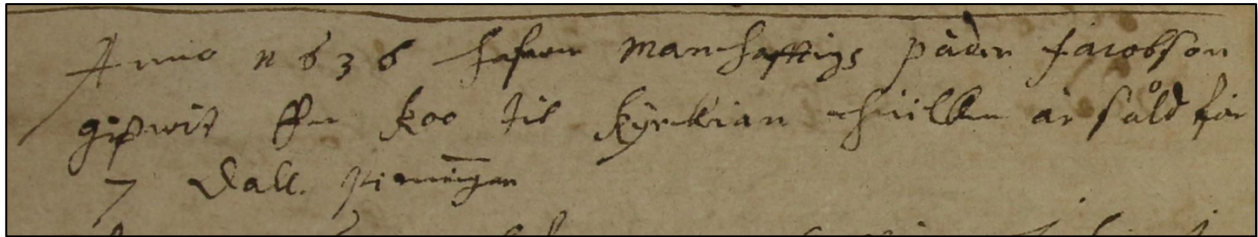 Anno 1636 hafwer Manhafftigs Päder Jacobson
gifwit En koo til kyrkian huilken är såld för
7 Dall. Peningar